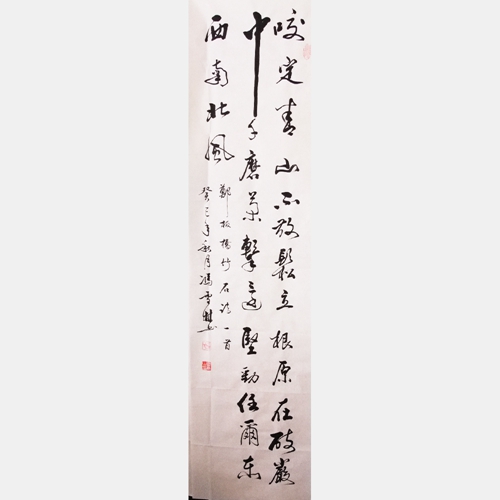 咬定青山不放鬆立根原在破巖
中千磨萬擊還堅勁任爾東
西南北風
鄭板橋竹石詩一首
癸巳年秋月馮雪